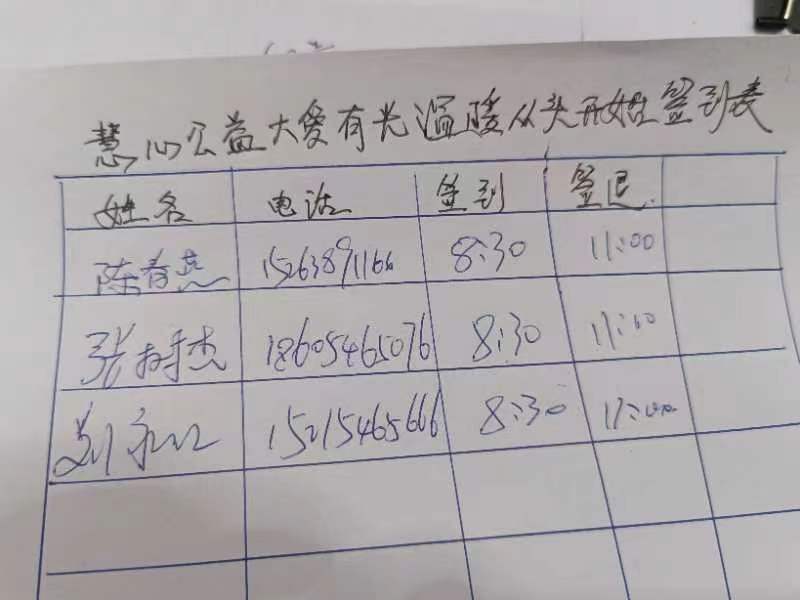 慧心公益大爱有光温暖从头开始签到表
姓名 电话 签到 签退
陈春燕 15263891166 8:30 11:00
张 杰 18605465076 8:30 11:00
刘 15215465666 8:30 11:00